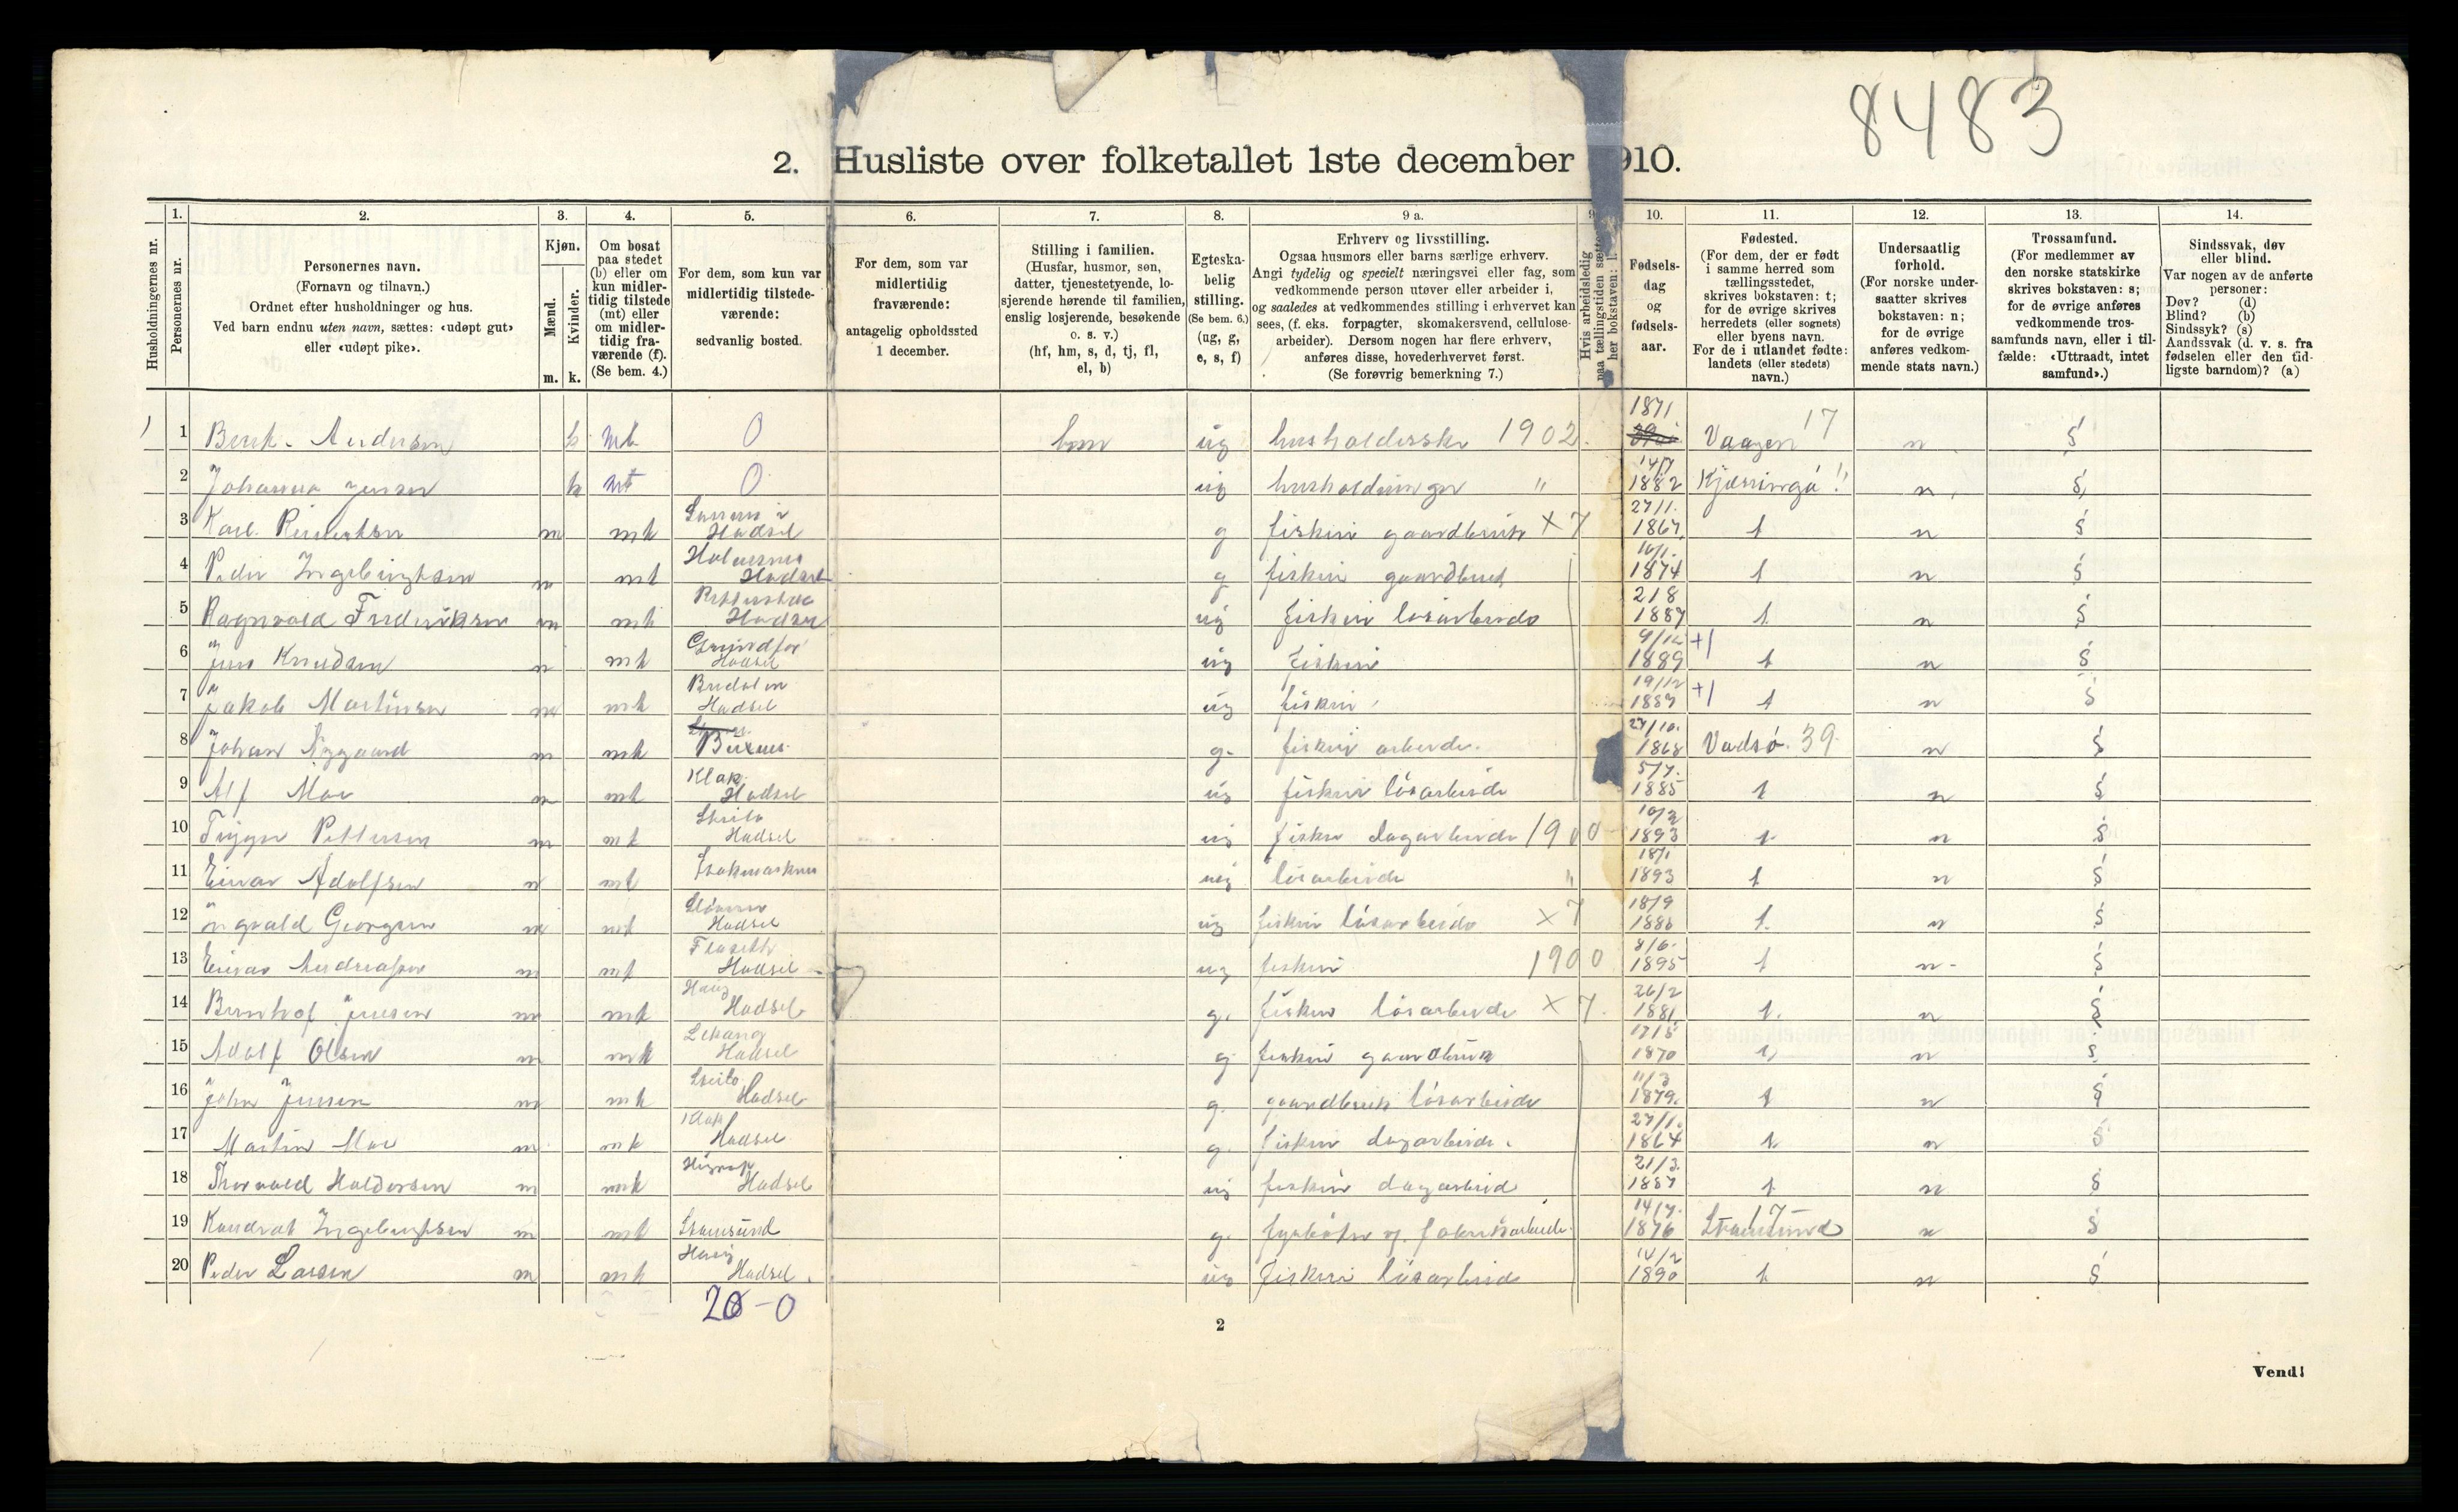 8483
2. Husliste over folketallet 1ste december 1910.
1. 2. 3. 4. 5. 6. 7. 8. 9 a. 9 10. 11. 12. 13. 14.
Husholdningernes nr.
Personernes nr.
Personernes navn.
(Fornavn og tilnavn.)
Ordnet efter husholdninger og hus.
Ved barn endnu uten navn, sættes: «udøpt gut»
eller «udøpt pike».
Kjøn.
Mænd.
Kvinder.
m. k.
Om bosat
paa stedet
(b) eller om
kun midler-
tidig tilstede
(mt) eller
om midler-
tidig fra-
værende (f).
(Se bem. 4.)
For dem, som kun var
midlertidig tilstede-
værende:
sedvanlig bosted.
For dem, som var
midlertidig
fraværende:
antagelig opholdssted
1 december.
Stilling i familien.
(Husfar, husmor, søn,
datter, tjenestetyende, lo-
sjerende hørende til familien,
enslig losjerende, besøkende
o. s. v.)
(hf, hm, s, d, tj, fl,
el, b)
Egteska-
belig
stilling.
(Se bem. 6.)
(ug, g,
e, s, f)
Erhverv og livsstilling.
Ogsaa husmors eller barns særlige erhverv.
Angi tydelig og specielt næringsvei eller fag, som
vedkommende person utøver eller arbeider i,
og saaledes at vedkommendes stilling i erhvervet kan
sees, (f. eks. forpagter, skomakersvend, cellulose-
arbeider). Dersom nogen har flere erhverv,
anføres disse, hovederhvervet først.
(Se forøvrig bemerkning 7.)
Hvis arbeidsledig
paa tællingstiden sættes
her bokstaven: l.
Fødsels-
dag
og
fødsels-
aar.
Fødested.
(For dem, der er født
i samme herred som
tællingsstedet,
skrives bokstaven: t;
for de øvrige skrives
herredets (eller sognets)
eller byens navn.
For de i utlandet fødte:
landets (eller stedets)
navn.)
Undersaatlig
forhold.
(For norske under-
saatter skrives
bokstaven: n;
for de øvrige
anføres vedkom-
mende stats navn.)
Trossamfund.
(For medlemmer av
den norske statskirke
skrives bokstaven: s;
for de øvrige anføres
vedkommende tros-
samfunds navn, eller i til-
fælde: «Uttraadt, intet
samfund».)
Sindssvak, døv
eller blind.
Var nogen av de anførte
personer:
Døv? (d)
Blind? (b)
Sindssyk? (s)
Aandssvak (d. v. s. fra
fødselen eller den tid-
ligste barndom)? (a)
1 Andersen k mt 0 ug 1902. 1871 Vaagen 17 n s
2 Johanna Jensen k mt 0 ug " 14/7 1882 n s
3 Karl m mt Hadsel g fiskeri gaardbruk X 7 27/11. 1867 t n s
4 Peder Ingebrigtsen m mt Hadsel g fiskeri gaardbruk 1874 t n s
5 Ragnvald Frederiksen m mt Hadsel ug fiskeri løsarbeide 1887 t n s
6 Jens Knudsen m mt Hadsel ug fiskeri 9/12 1889 +1 t n s
7 Jakob Martinsen m mt Hadsel ug fiskeri 19/12 1889 +1 t n s
8 Johan Nygaard m mt g. fiskeri arbeide. 27/10. 1868 Vadsø. 39 n s
9 Alf Moe m mt Klak Hadsel ug fiskeri løsarbeide 5/7. 1885 t n s
10 Trygve Pettersen m mt Hadsel ug fiskeri dagarbeide 1900 1893 t n s
11 Einar Adolfsen m mt ug løsarbeide " 18/1 1893 t n s
12 Ingvald Georgsen m mt Hadsel ug fiskeri løsarbeide X 7 18/9 1886 t. n s
13 Einar Andreassen m mt Hadsel ug fiskeri 1900 8/6. 1895 t n s
14 Bernhof Jensen m mt Haug Hadsel g. fiskeri løsarbeide X 7. 26/2 1881 t. n s
15 Adolf Olsen m mt Lekang Hadsel g fiskeri gaardbruk 17/5 1870 t n s
16 John Jensen m mt Hadsel g. gaardbruk løsarbeide 11/3 1879. t n s
17 Martin Moe m mt Klak Hadsel g. fiskeri dagarbeide. 27/1. 1864 t n s
18 Thorvald Haldorsen m mt Hadsel ug fiskeri dagarbeid 21/3. 1887 t n s
19 Kondrat Ingebrigtsen m mt Stamsund g. fyrbøter og fabrikarbeide. 14/7. 1876 Stamsund 17 n s
20 Peder Larsen m mt Haug Hadsel. ug fiskeri løsarbeid 1890 t n s
20-0
2
Vend!